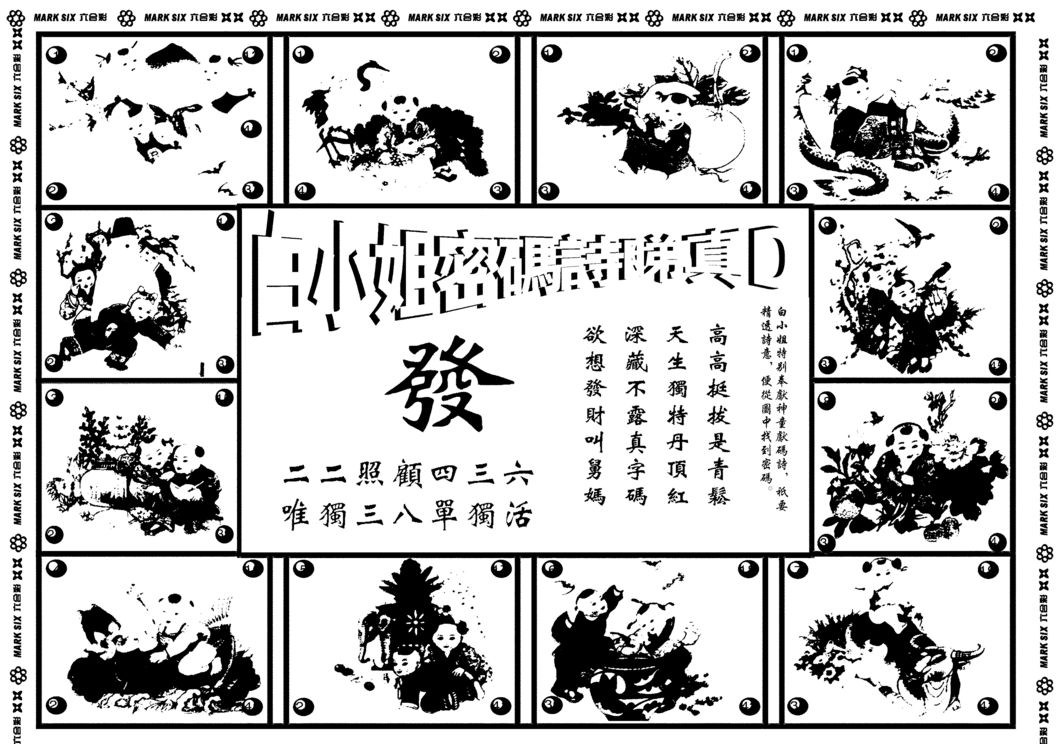 MARK SIX 六合彩 MARK SIX 六合彩 MARK SIX 六合彩 MARK SIX 六合彩 MARK SIX 六合彩 MARK SIX 六合彩 MARK SIX 六合彩 MARK SIX 六合彩
白小姐密碼詩睇真D
白小姐特別奉獻神童獻碼詩，祇要
精透詩意，便從圖中找到密碼。
高高挺拔是青鬆
天生獨特丹頂紅
深藏不露真字碼
欲想發財叫舅媽
發
二二照顧四三六
唯獨三八單獨活
MARK SIX 六合彩
MARK SIX 六合彩
MARK SIX 六合彩
MARK SIX 六合彩
MARK SIX 六合彩
MARK SIX 六合彩
MARK SIX 六合彩
MARK SIX 六合彩
MARK SIX 六合彩
MARK SIX 六合彩